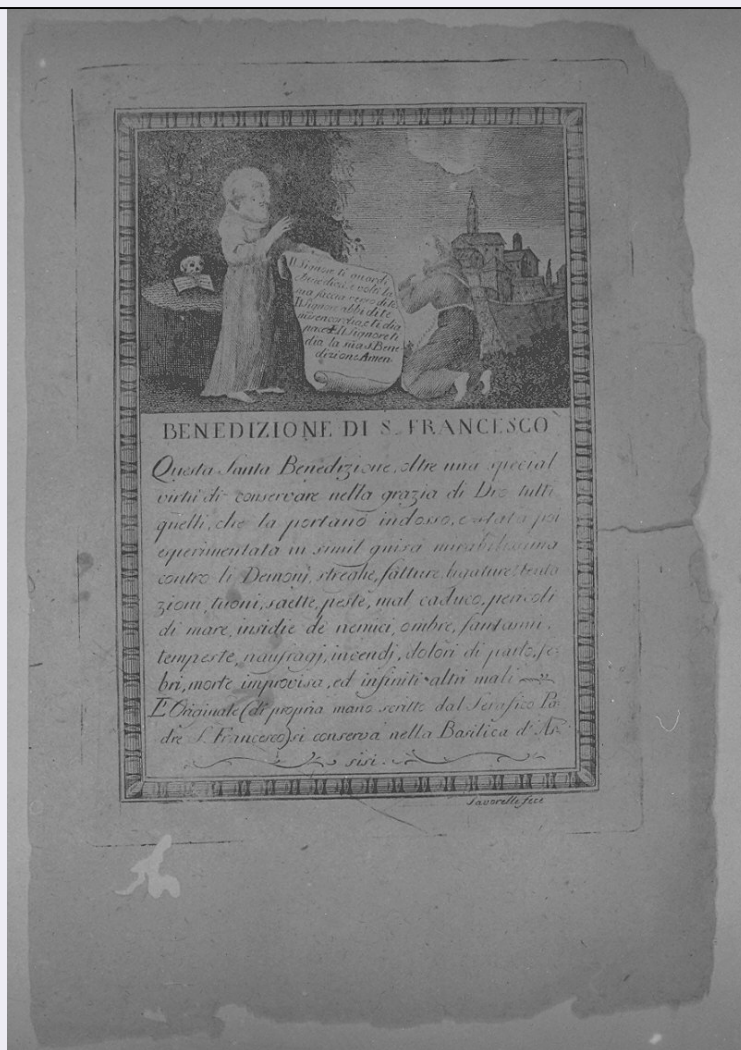 Il Signore ti guardi
e benedica, e volti la
sua faccia verso di te.
Il Signore abbi di te
misericordia, e ti dia
pace Il Signore ti
dia la sua S. Bene
dizione. Amen
BENEDIZIONE DI S. FRANCESCO
Questa Santa Benedizione, oltre una special
virtù di conservare nella grazia di Dio tutti
quelli, che la portano indosso, e stata poi
esperimentata in simil guisa mirabilissima
contro li Demonj, streghe, fatture, ligature, tenta
zioni, tuoni, saette, peste, mal caduco, pericoli
di mare, insidie de nemici, ombre, fantasmi,
tempeste, naufragj, incendj, dolori di parto, fe
bri, morte improvisa, ed infiniti altri mali
L'Originale (di propria mano scritto dal Serafico Pa
dre S. Francesco) si conserva nella Basilica d' As
sisi.
fece